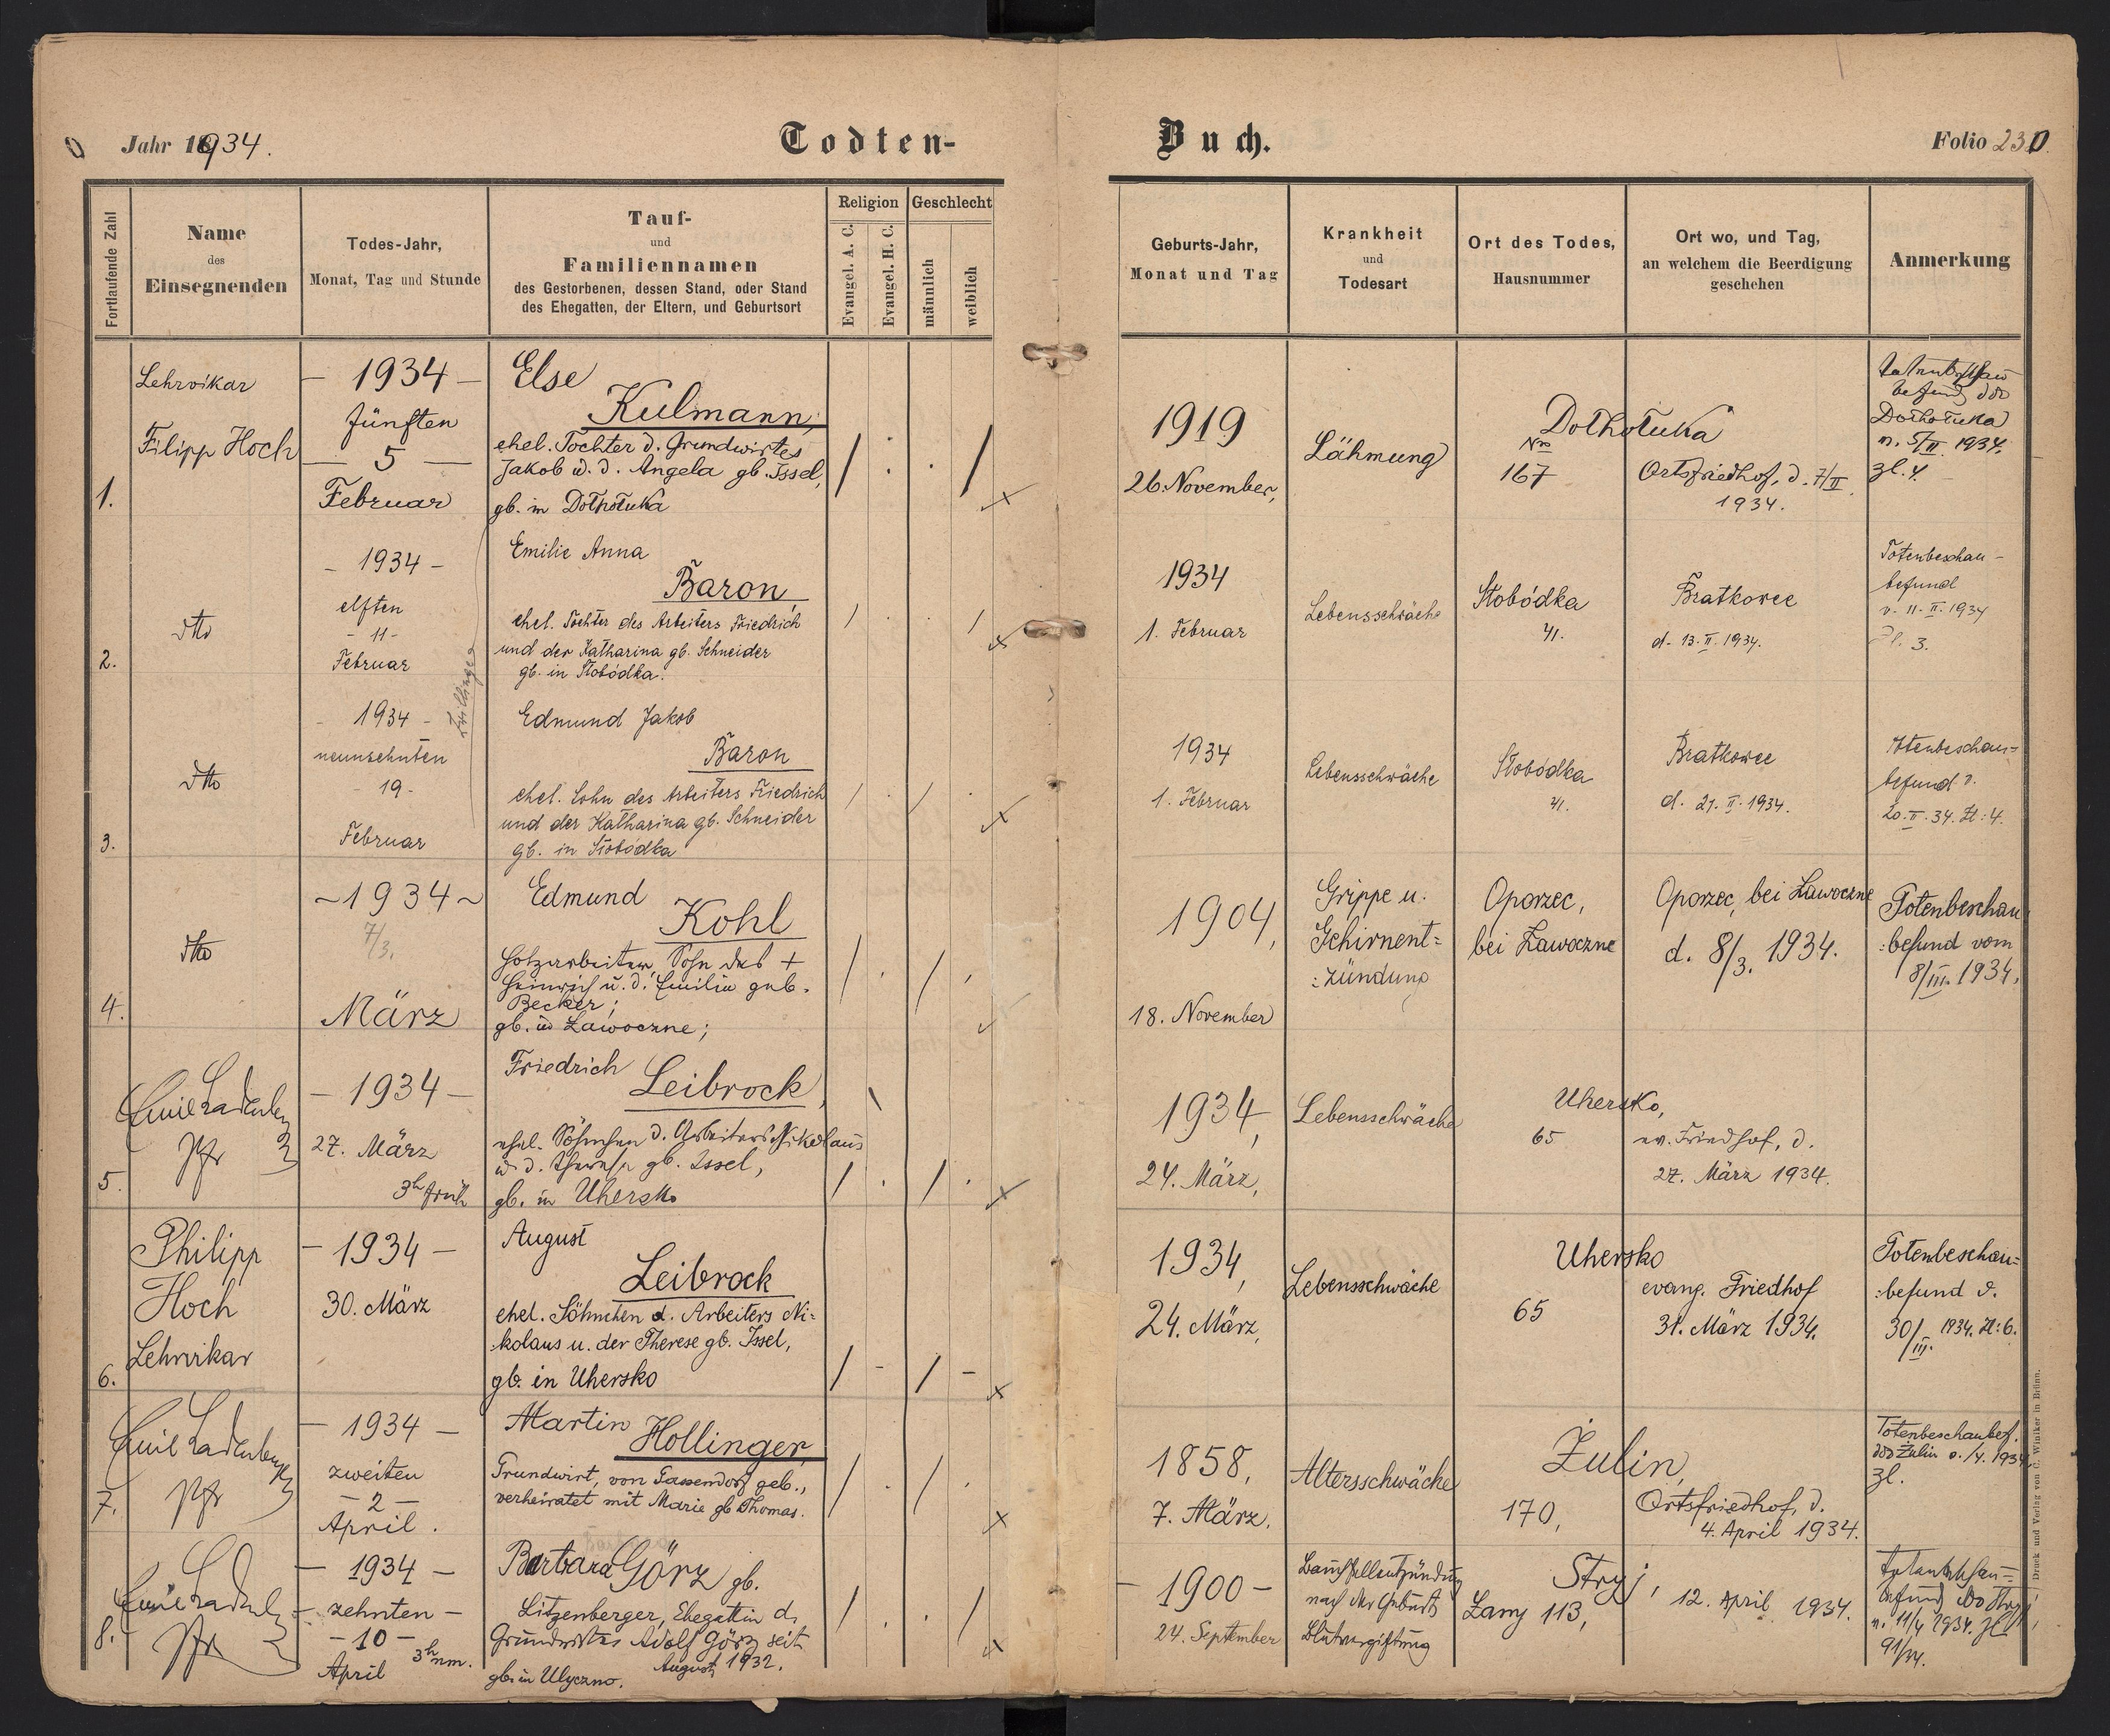 Jahr 1934.
Todten-
Buch.
Folio 230
Fortlaufende Zahl
Name
des
Einsegnenden
Todes-Jahr,
Monat, Tag und Stunde
Tauf-
und
Familiennamen
des Gestorbenen, dessen Stand, oder Stand
des Ehegatten, der Eltern, und Geburtsort
Religion
Evangel. A. C.
Evangel. H. C.
Geschlecht
männlich
weiblich
Geburts-Jahr,
Monat und Tag
Krankheit
und
Todesart
Ort des Todes,
Hausnummer
Ort wo, und Tag,
an welchem die Beerdigung
geschehen
Anmerkung
1.
Lehrvikar
Filipp Hoch
- 1934 -
fünften
- 5 -
Februar
Else
Kulmann,
ehel. Tochter d. Grundwirtes
Jakob u. d. Angela gb. Issel,
gb. in Dołhołuka
1919
26. November,
Lähmung
Dołhołuka
No
167
Ortsfriedhof, d. 7/II.
1934.
Totenbeschau
befund
Dołhołuka
v. 5/II 1934.
Zl. 4.
2.
dtto
- 1934 -
elften
- 11 -
Februar
Zwillinge
Emilie Anna
Baron,
ehel. Tochter des Arbeiters Friedrich
und der Katharina gb. Schneider
gb. in Słobódka.
1934
1. Februar
Lebensschwäche
Słobódka
41.
Bratkowce
d. 13. II. 1934.
Totenbeschau-
befund
v. 11. II. 1934
Zl. 3.
3.
dtto
- 1934 -
neunzehnten
- 19 -
Februar
Edmund Jakob
Baron
ehel. Sohn des Arbeiters Friedrich
und der Katharina gb. Schneider
gb. in Słobódka
1934
1. Februar
Lebensschwäche
Słobódka
41.
Bratkowce
d. 21. II. 1934.
Totenbeschau=
befund v.
20. II. 34. Zl: 4.
4.
dtto
~ 1934 ~
7/3.
März
Edmund
Kohl
Holzarbeiter, Sohn des +
Heinrich u. d. Emilia geb.
Becker;
gb. in Ławoczne;
1904,
18. November
Grippe u.
Gehirnent=
:zündung
Oporzec,
bei Ławoczne
Oporzec, bei Ławoczne
d. 8/3. 1934.
Totenbeschau
:befund vom
8/III. 1934.
5.
Emil Ladenberger
Pfr
- 1934 -
27. März
3h früh
Friedrich
Leibrock,
ehel. Söhnchen d. Arbeiters Nikolaus
u. d. Therese gb. Issel,
gb. in Uhersko
1934,
24. März,
Lebensschwäche
Uhersko,
65
ev. Friedhof, d.
27. März 1934.
6.
Philipp
Hoch
Lehrvikar
- 1934 -
30. März
August
Leibrock
ehel. Söhnchen d. Arbeiters Ni-
kolaus u. der Therese gb. Issel,
gb. in Uhersko
1934,
24. März,
Lebensschwäche
Uhersko
65
evang. Friedhof
31. März 1934.
Totenbeschau=
:befund v.
30/III. 1934. Zl: 6.
7.
Emil Ladenberger
Pfr
- 1934 -
zweiten
- 2 -
April.
Martin Hollinger,
Grundwirt, von Gassendorf geb.,
verheiratet mit Marie gb Thomas.
1858,
7. März.
Altersschwäche
Żulin,
170,
Ortsfriedhof, d.
4. April 1934.
Totenbeschaubef.
Żulin v. /4. 1934
Zl.
8.
Emil Ladenberger
Pfr
- 1934 -
- zehnten -
- 10 -
3h nm.
April
Barbara Görz gb.
Litzenberger, Ehegattin d.
Grundwirtes Adolf Görz seit
August 1932.
gb. in Ulyczno.
- 1900 -
24. September
Bauchfellentzündung
nach der Geburt
Blutvergiftung
Stryj,
Łany 113,
12. April 1934.
Totenbeschau=
befund
v. 11/4 1934. Zl
91/34.
Druck und Verlag von C. Winiker in Brünn.